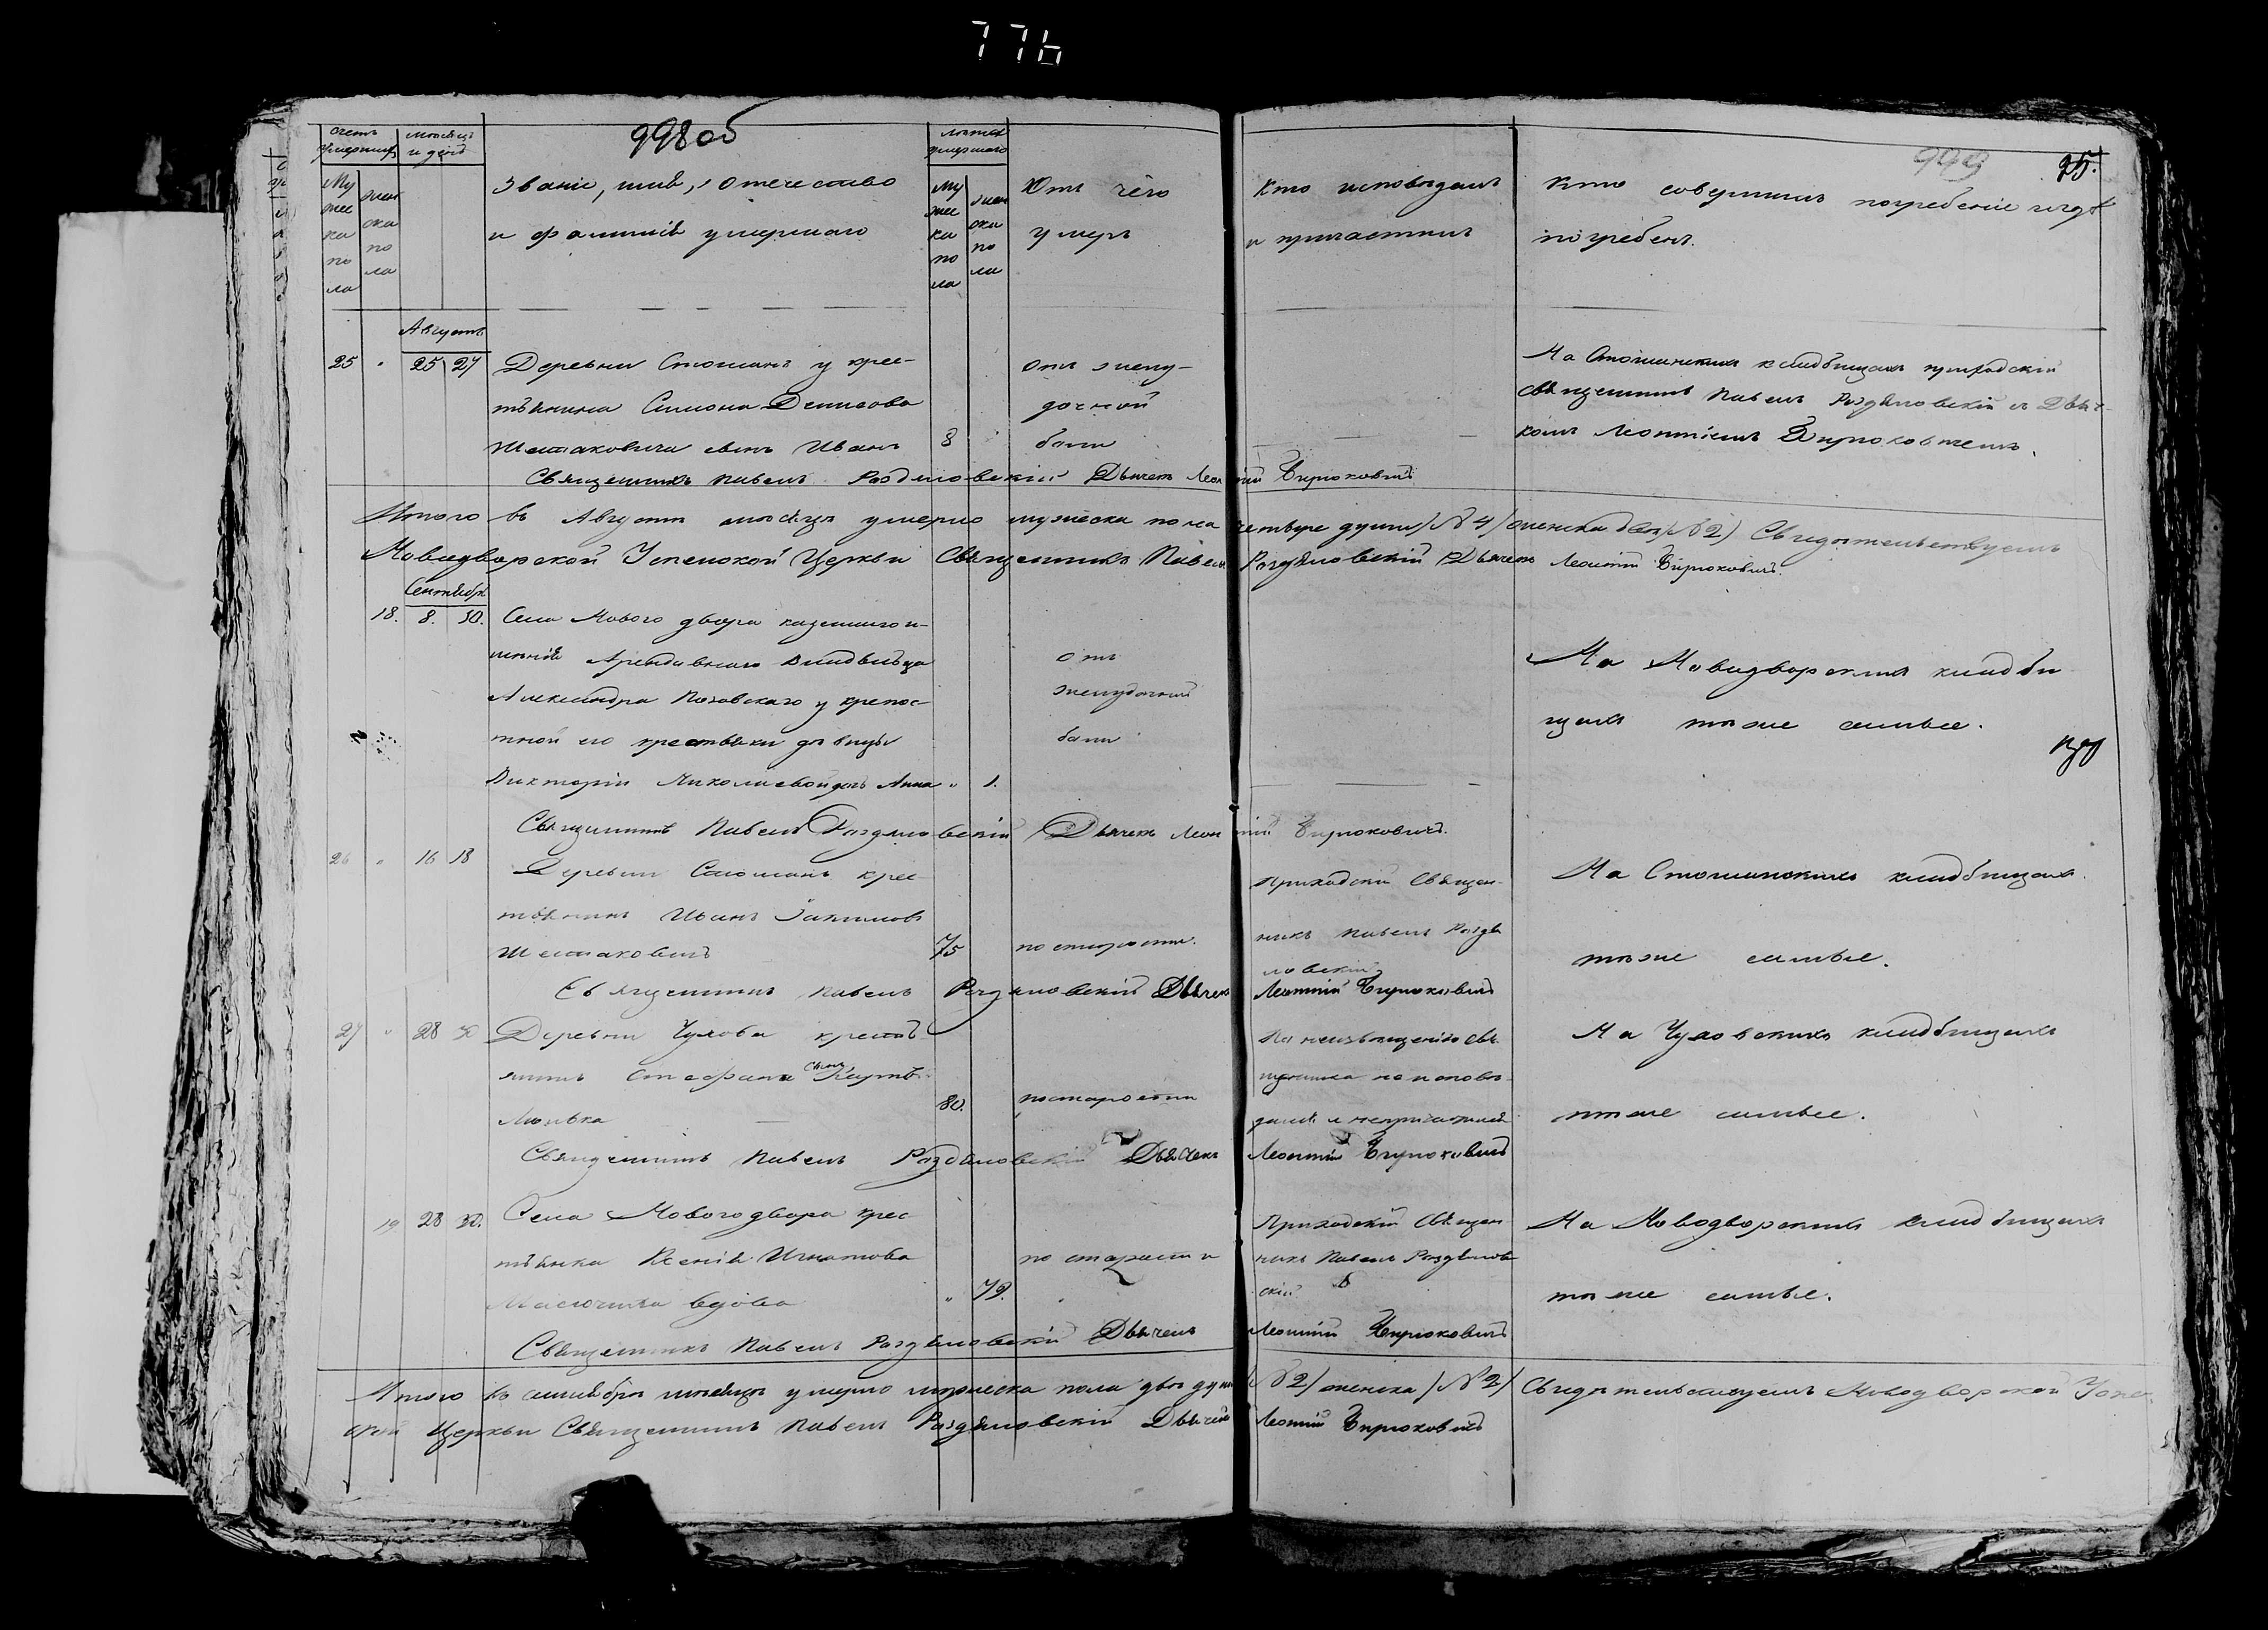 776
998об
999
25.
счетъ умершихъ
мѣсяцъ и день
Мужеска пола
женска пола
Званіе, имя, отечество
и фамилія умершаго
лѣта умершаго
Мужеска пола
женска пола
Отъ чего
умеръ
Кто исповѣдалъ
и причастилъ
Кто совершилъ погребеніе и гдѣ
погребенъ.
Августъ
25 " 25 27 Деревни Стошанъ у крес-
тьянина Симона Денисова
Шелтаковича сынъ Иванъ 8
отъ желу-
дочной
боли
На Стошинскихъ кладбищахъ приходскій
священникъ Павелъ Роздяловскій съ Дьяч-
комъ Леонтіемъ Бирюковичемъ.
Священникъ Павелъ Роздяловскій Дьячекъ Леонтій Бирюковичъ
Итого въ Августѣ мѣсяцѣ умерло мужеска пола четыре души /№ 4/ женска двѣ /№ 2/ Свидѣтельствуемъ
Новодворской Успенской Церкви Священникъ Павелъ Роздяловскій Дьячекъ Леонтій Бирюковичъ.
Сентябрь
18. 8. 10. Села Нового двора казеннаго и-
мѣнія Арендовнаго владѣльца
Александра у крепос-
тной его крестьянки дѣвицы
Викторіи Николаевой дочь Анна " 1.
отъ
желудочной
боли
На Новодворскихъ кладби
щахъ тѣ же самые.
Священникъ Павелъ Роздяловскій Дьячекъ Леонтій Бирюковичъ.
26 " 16 18 Деревни Стошанъ крес-
тьянинъ Иванъ Іакимовъ
75 по старости.
Приходскій Священ-
никъ Павелъ Роздя
ловскій
На Стошинскихъ кладбищахъ
тѣ же самые.
Священникъ Павелъ Роздяловскій Дьячекъ Леонтій Бирюковичъ
27 " 28 30 Деревни Чухова крестья-
нинъ Стефанъ
80. по старости
По неизвѣщенію свя-
щенника не исповѣ-
данъ и непричащенъ
На Чуховскихъ кладбищахъ
тѣ же самые.
Священникъ Павелъ Роздяловскій Дьячекъ Леонтій Бирюковичъ
19 28 30. Села Нового двора крес
тьянка Ксенія Игнатова
вдова " 79.
по старости
Приходскій Священ
никъ Павелъ Роздялов
скій
На Новодворскихъ кладбищахъ
тѣ же самые.
Священникъ Павелъ Роздяловскій Дьячекъ Леонтій Бирюковичъ
Итого въ сентябрѣ мѣсяцѣ умерло мужеска пола двѣ души /№ 2/ женска /№ 2/ Свидѣтельствуемъ Новодворской Успен
ской Церкви Священникъ Павелъ Роздяловскій Дьячекъ Леонтій Бирюковичъ